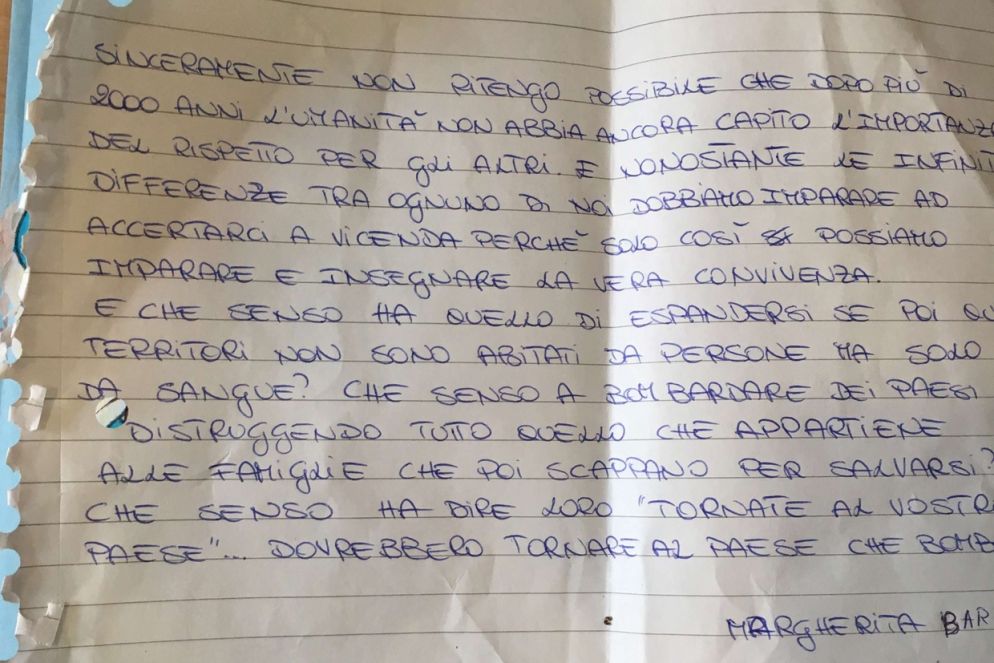 SINCERAMENTE NON RITENGO POSSIBILE CHE DOPO PIÙ DI
2000 ANNI L'UMANITÀ NON ABBIA ANCORA CAPITO L'IMPORTANZA
DEL RISPETTO PER GLI ALTRI. E NONOSTANTE LE INFINIT
DIFFERENZE TRA OGNUNO DI NOI DOBBIAMO IMPARARE AD
ACCERTARCI A VICENDA PERCHÈ SOLO COSÌ POSSIAMO
IMPARARE E INSEGNARE LA VERA CONVIVENZA.
E CHE SENSO HA QUELLO DI ESPANDERSI SE POI QU
TERRITORI NON SONO ABITATI DA PERSONE MA SOLO
DA SANGUE? CHE SENSO A BOMBARDARE DEI PAESI
DISTRUGGENDO TUTTO QUELLO CHE APPARTIENE
ALLE FAMIGLIE CHE POI SCAPPANO PER SALVARSI?
CHE SENSO HA DIRE LORO "TORNATE AL VOSTR
PAESE"... DOVREBBERO TORNARE AL PAESE CHE BOMB
MARGHERITA BAR